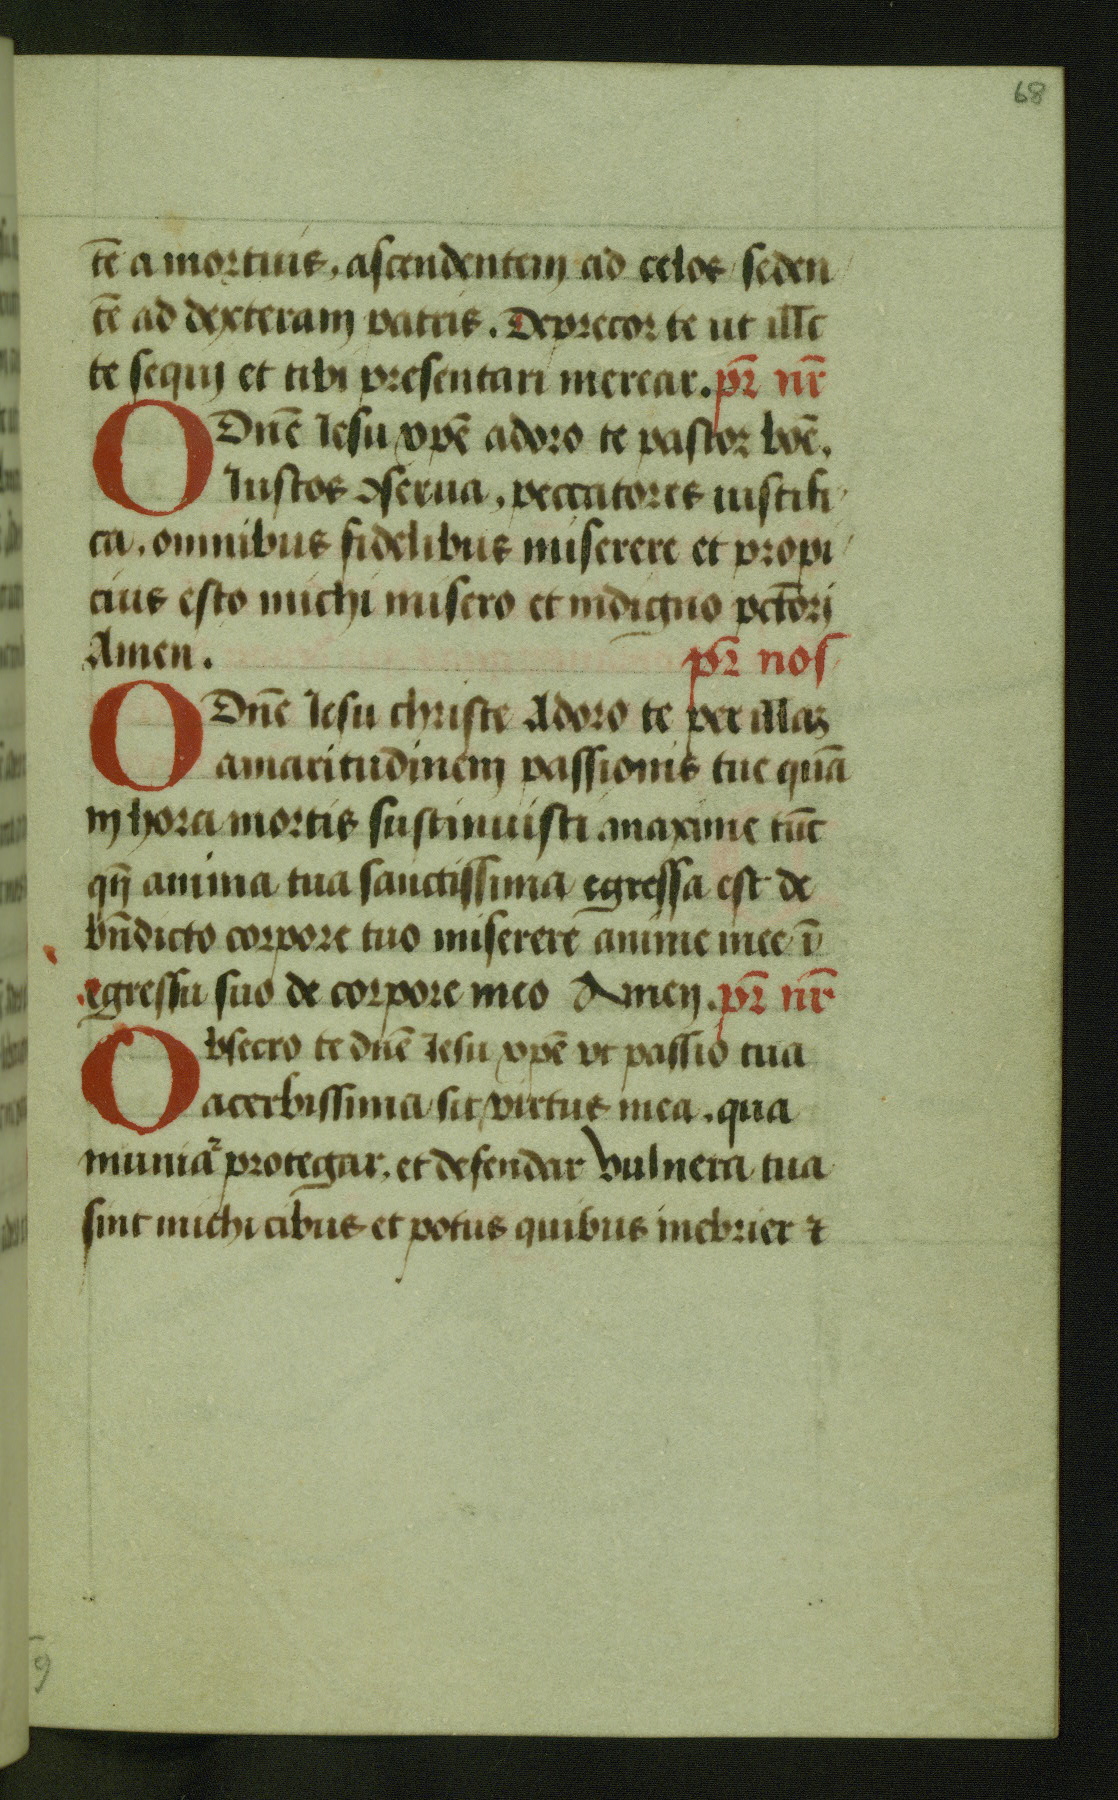 68
tē a mortuis, ascendentem ad celos seden
tē ad dexteram patris. Deprecor te ut illīc
te sequi et tibi presentari merear. pr̄ nr̄
O Dn̄e Iesu xp̄e adoro te pastor bōe.
Iustos ꝯserua, peccatores iustifi
ca, omnibus fidelibus miserere et propi
cius esto michi misero et indigno pctōri
Amen. pr̄ nos
O Dn̄e Iesu christe Adoro te per illaꝫ
amaritudinem passionis tue quā
in hora mortis sustinuisti maxime tūc
qn̄ anima tua sanctissima egressa est de
bn̄dicto corpore tuo miserere anime mee ī
egressu suo de corpore meo Amen. pr̄ nr̄
Obsecro te dn̄e Iesu xp̄e vt passio tua
acerbissima sit virtus mea, qua
muniar protegar, et defendar Vulnera tua
sint michi cibus et potus quibus inebrier ⁊